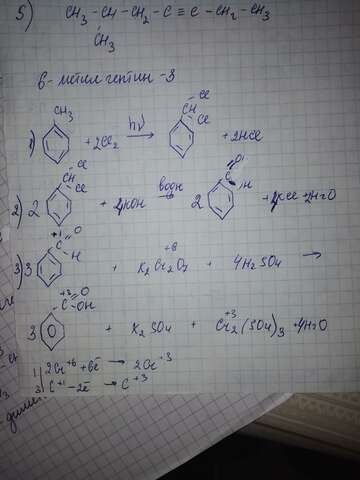 5) CH₃ - CH - CH₂ - C ≡ C - CH₂ - CH₃
CH₃
6 - метил гептин - 3
1) CH₃ + 2Cl₂ hν → CH Cl Cl + 2HCl
2) 2 CH Cl Cl + 4KOH водн → 2 C O H + 4KCl + 2H₂O
3) 3 +1 C O H + K₂Cr₂O₇ +6 + 4H₂SO₄ →
3 +3 C O OH + K₂SO₄ + Cr₂(SO₄)₃ +3 + 4H₂O
1| 2Cr⁺⁶ + 6ē → 2Cr⁺³
3| C⁺¹ - 2ē → C⁺³